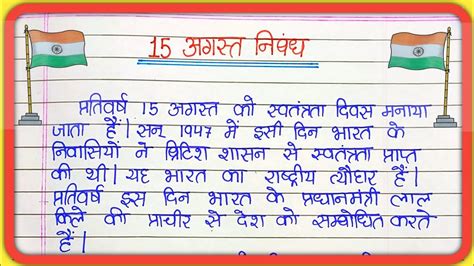 15 अगस्त निबंध
प्रतिवर्ष 15 अगस्त को स्वतंत्रता दिवस मनाया
जाता हैं। सन् 1947 में इसी दिन भारत के
निवासियों ने ब्रिटिश शासन से स्वतंत्रता प्राप्त
की थी। यह भारत का राष्ट्रीय त्यौहार हैं।
प्रतिवर्ष इस दिन भारत के प्रधानमंत्री लाल
किले की प्राचीर से देश को सम्बोधित करते
हैं।